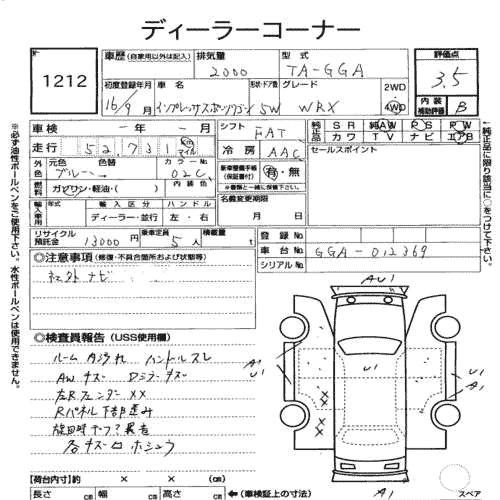 ディーラーコーナー
1212
車歴 (自家用以外は記入) 排気量 2000 型式 TA-GGA
評価点 3.5
内装補助評価 B
初度登録年月 16/9月 車名 インプレッサスポーツワゴン 形状・ドア数 5W グレード WRX 2WD 4WD
車検 ー 年 ー 月 シフト FAT 純正品 SR AW PS PW カワ TV ナビ エアB
走行 52,731 km マイル 冷房 AAC セールスポイント
外色 元色 ブルー 色替 カラーNo. 02C 新車整備手帳 (保証書付) 有・無
燃料 ガソリン・軽油・( ) 内装色 ※書類と一緒に保管下さい。
輸入車用 年式 輸入区分 ハンドル 名義変更期限
ディーラー・並行 左・右 月 日
リサイクル預託金 13000円 乗車定員 5人 積載量 t 登録No.
車台No. GGA-012369
シリアルNo.
◎注意事項 (修復・不具合箇所および状態等)
社外ナビ
◎検査員報告 (USS使用欄)
ルーム内汚れ ハンドルスレ
AWキズ Dミラーキズ
左Rフェンダー XX
Rパネル下部歪み
各キズ凹ホシュウ
AU1
A1
U1
U1
A1
U1
A1
XX
XX
A1
スペア
【荷台内寸】約 × × (cm)
長さ cm 幅 cm 高さ cm ←(車検証上の寸法)
※必ず油性ボールペンをご使用下さい。水性ボールペンは使用できません。